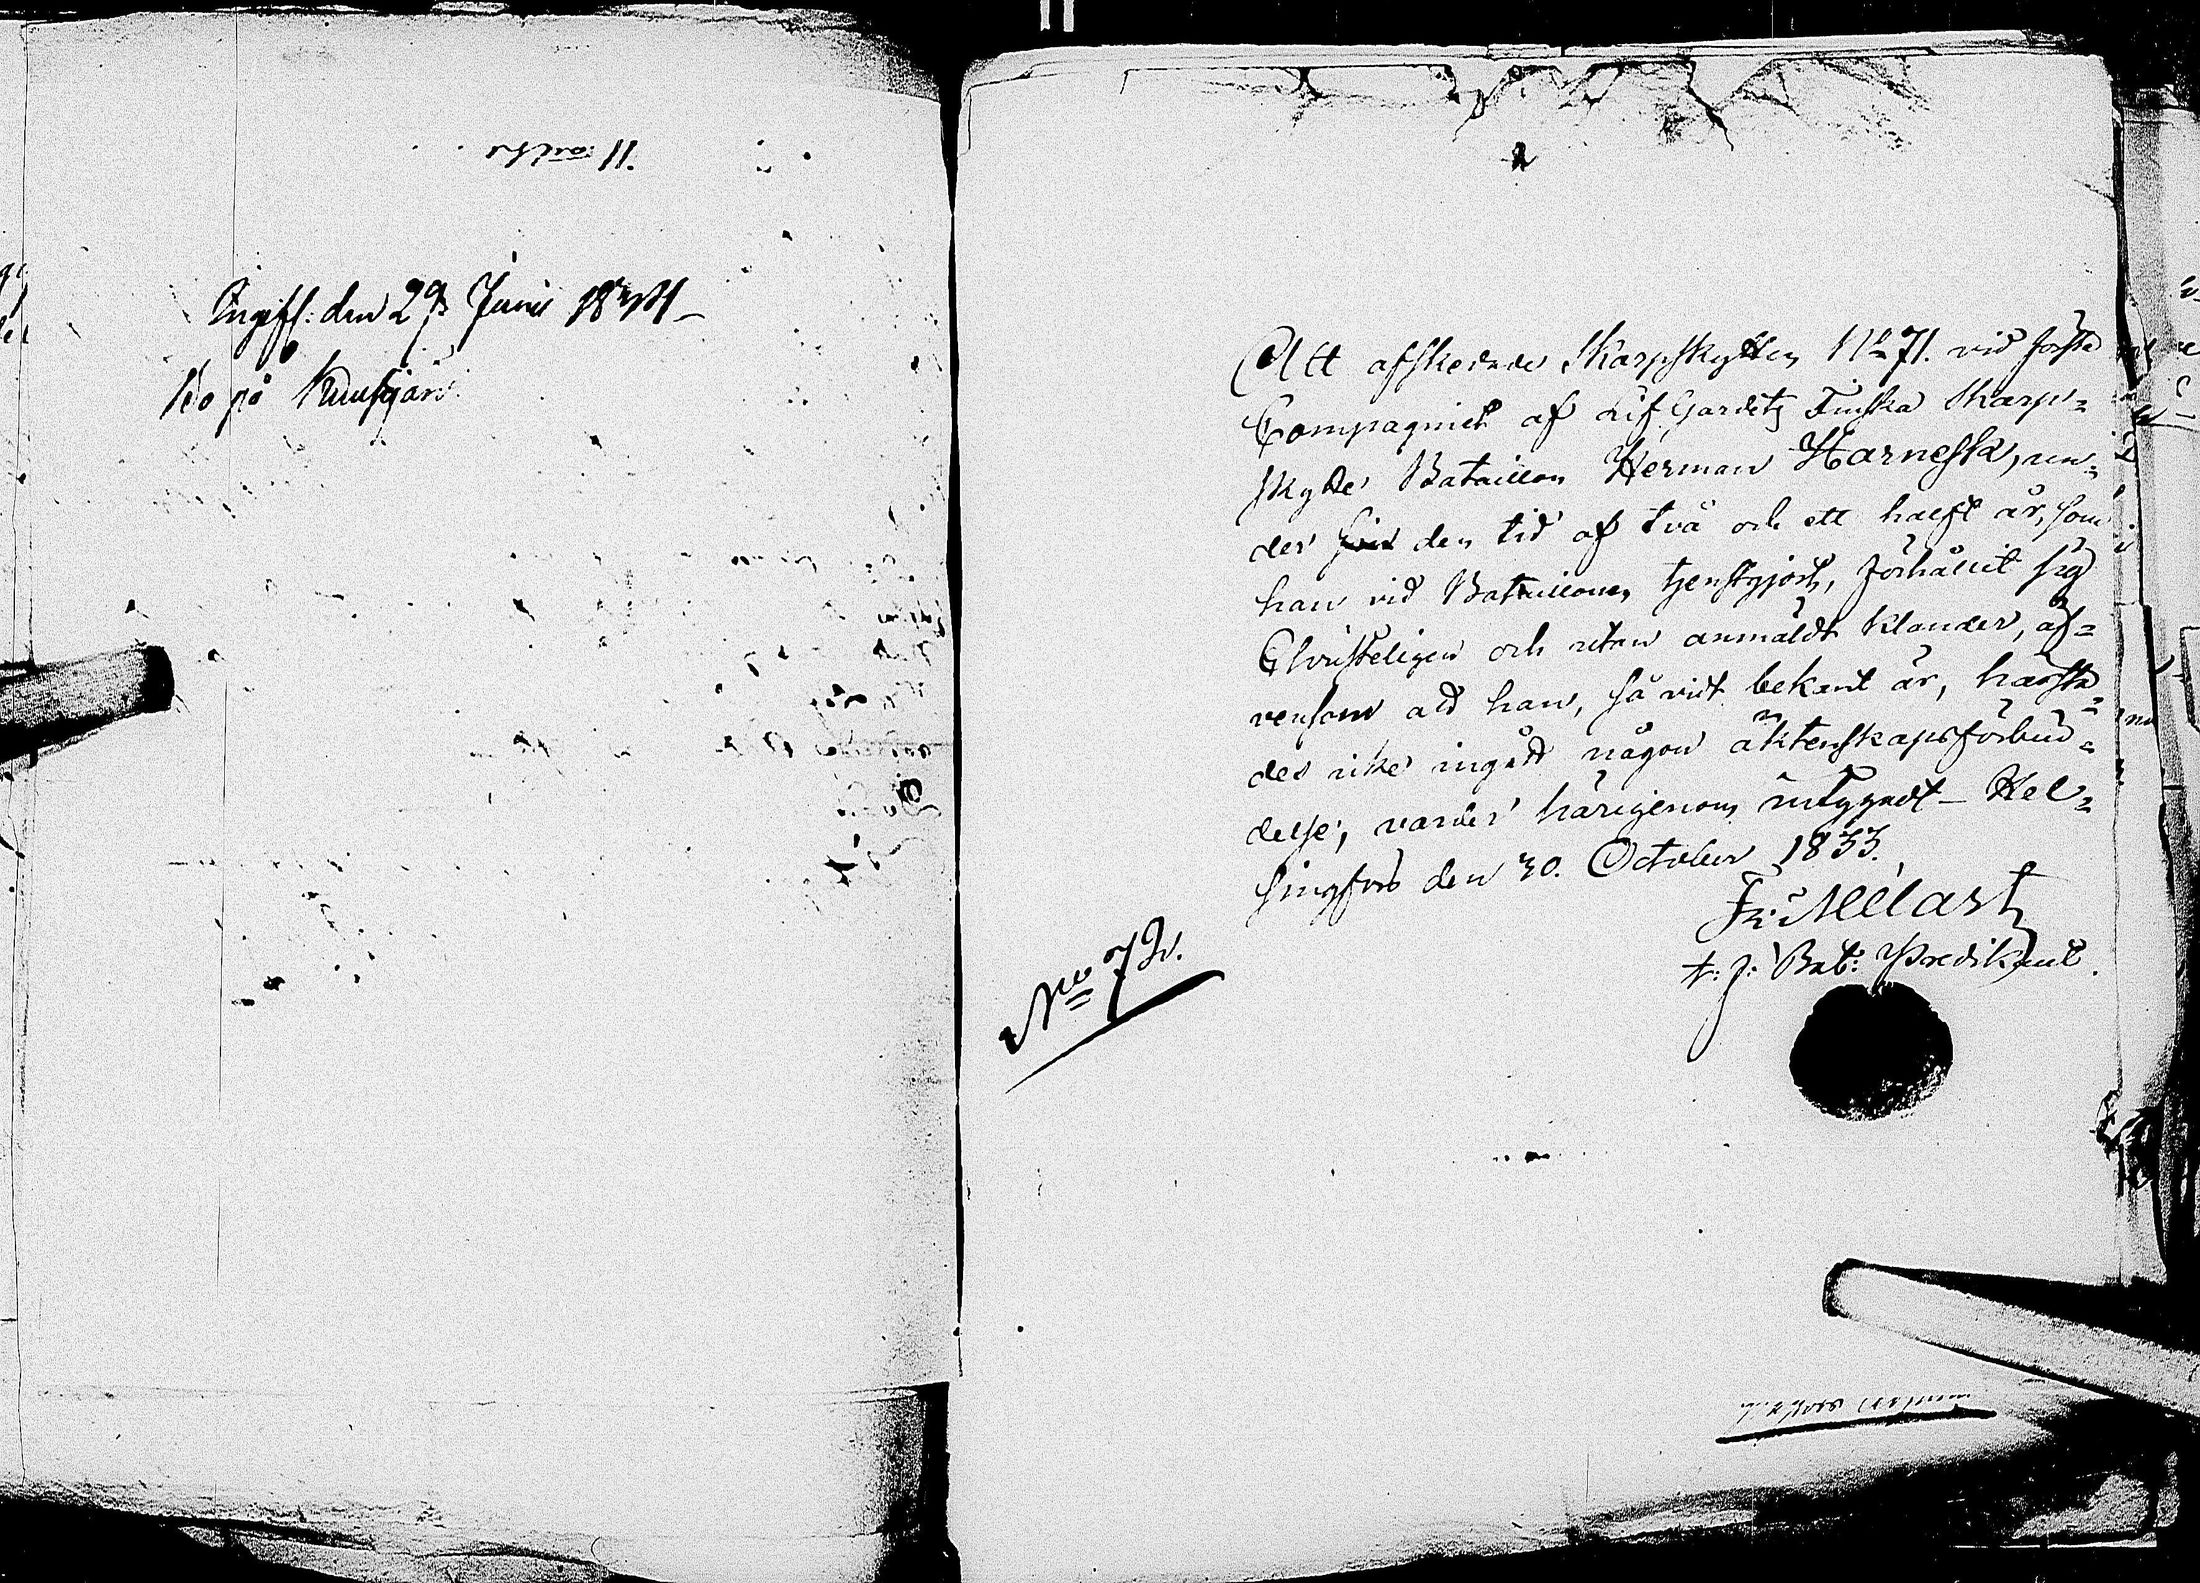 Ingifl: den 29de Junii 1834
bo på Kuusijärvi
Att afskedade Skarpskytten No 71. vid första
Compagniet af Lif Gardets Finska Skarp=
skytte Bataillon Herman Harnesk, un=
der den tid af två och ett halft år, som
han vid Bataillonen tjenstgjort, förhållit sig
Christeligen och utan anmäldt klander, äf=
vensom att han, så vidt bekant är, härstä=
des icke ingått någon äktenskapsförbin=
delse, varder härigenom intygadt – Hel=
singfors den 30. October 1833.
Fr: Mélart
t: f: Bat: Predikant.
No 72.